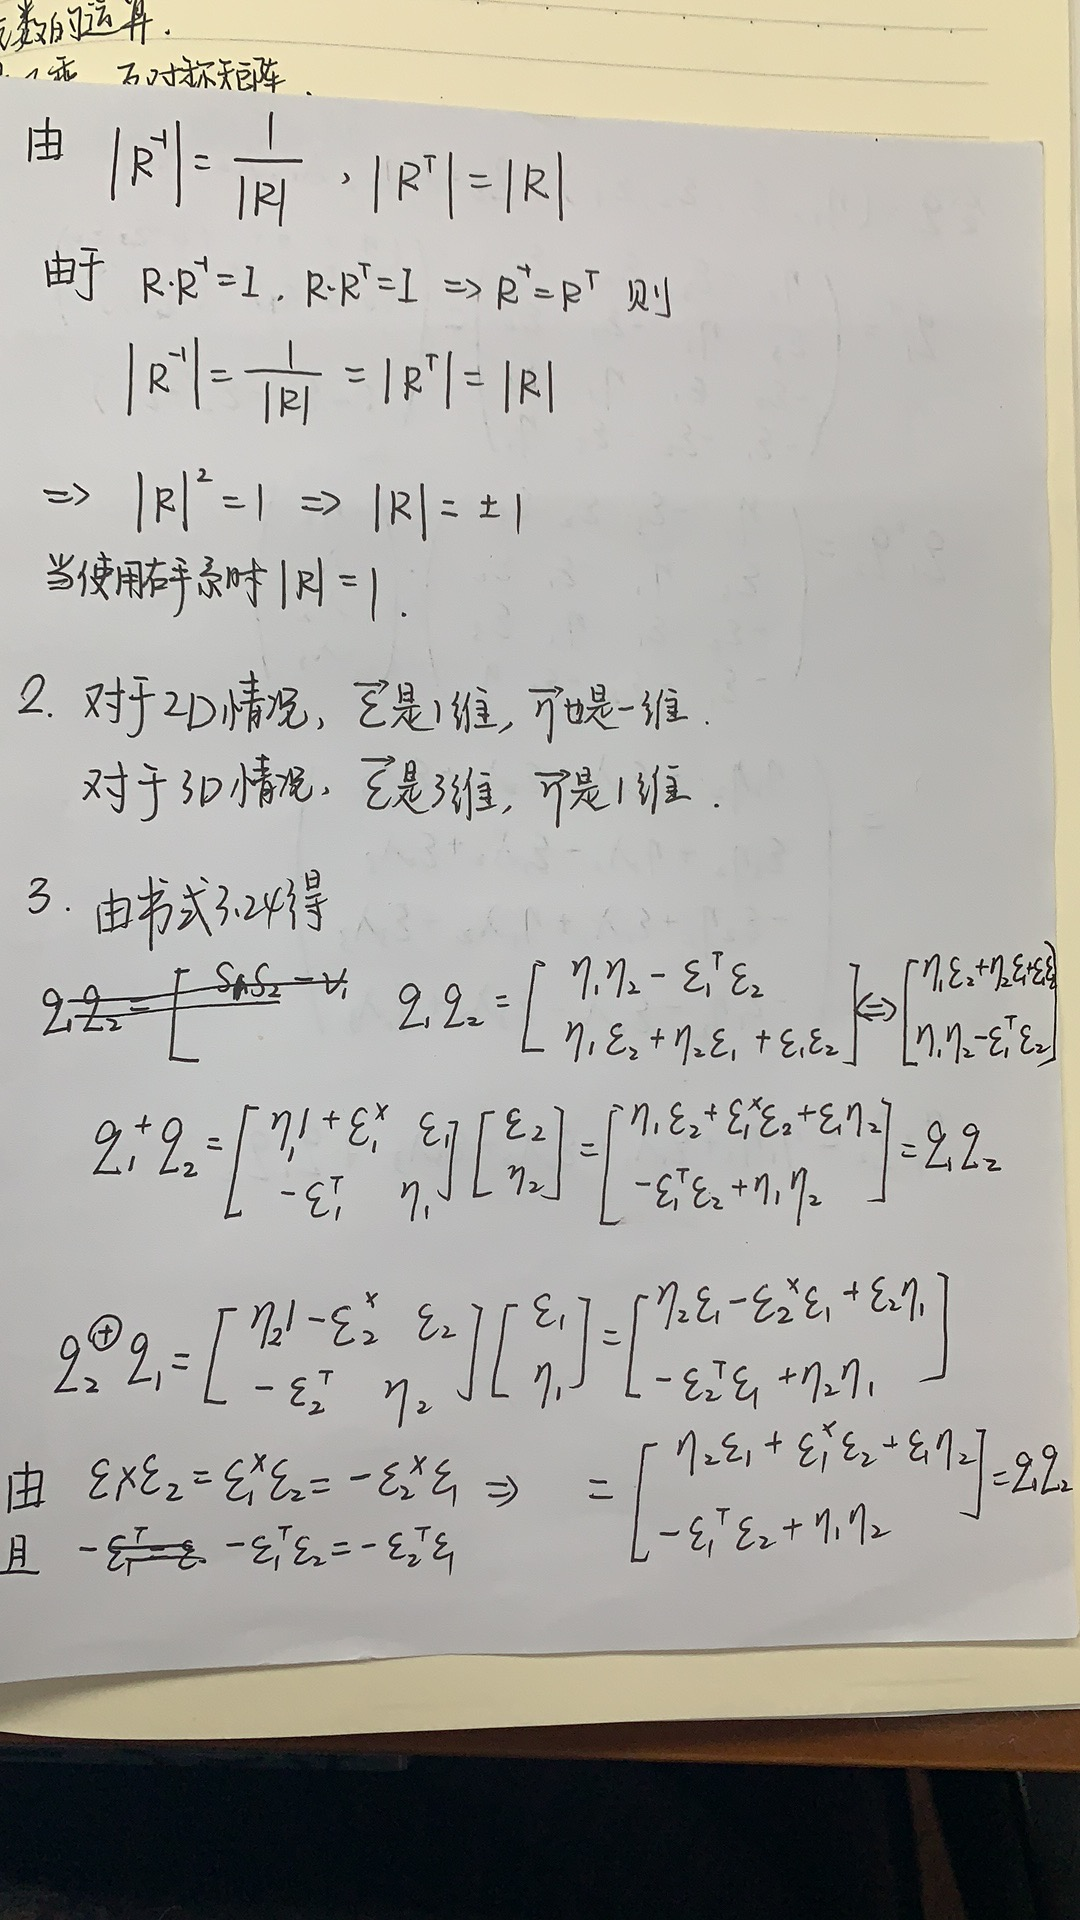 数的运算.
反对称矩阵.
由 |R⁻¹| = 1/|R| , |Rᵀ| = |R|
由于 R·R⁻¹=I , R·Rᵀ=I ⇒ R⁻¹=Rᵀ 则
|R⁻¹| = 1/|R| = |Rᵀ| = |R|
⇒ |R|² = 1 ⇒ |R| = ±1
当使用右手系时 |R| = 1 .
2. 对于2D情况, ε⃗是1维, η⃗也是一维.
对于3D情况, ε⃗是3维, η⃗是1维.
3. 由书式3.24得
q₁q₂ = [ η₁η₂ - ε₁ᵀε₂ ; η₁ε₂ + η₂ε₁ + ε₁ε₂ ] ⇔ [ η₁ε₂+η₂ε₁+ε₁ε₂ ; η₁η₂-ε₁ᵀε₂ ]
q₁⁺q₂ = [ η₁1 + ε₁ˣ ε₁ ; -ε₁ᵀ η₁ ] [ ε₂ ; η₂ ] = [ η₁ε₂+ε₁ˣε₂+ε₁η₂ ; -ε₁ᵀε₂+η₁η₂ ] = q₁q₂
q₂^⊕ q₁ = [ η₂1 - ε₂ˣ ε₂ ; -ε₂ᵀ η₂ ] [ ε₁ ; η₁ ] = [ η₂ε₁ - ε₂ˣε₁ + ε₂η₁ ; -ε₂ᵀε₁ + η₂η₁ ]
由 ε₁×ε₂ = ε₁ˣε₂ = -ε₂ˣε₁ ⇒ = [ η₂ε₁ + ε₁ˣε₂ + ε₁η₂ ; -ε₁ᵀε₂ + η₁η₂ ] = q₁q₂
且 -ε₁ᵀε₂ = -ε₂ᵀε₁